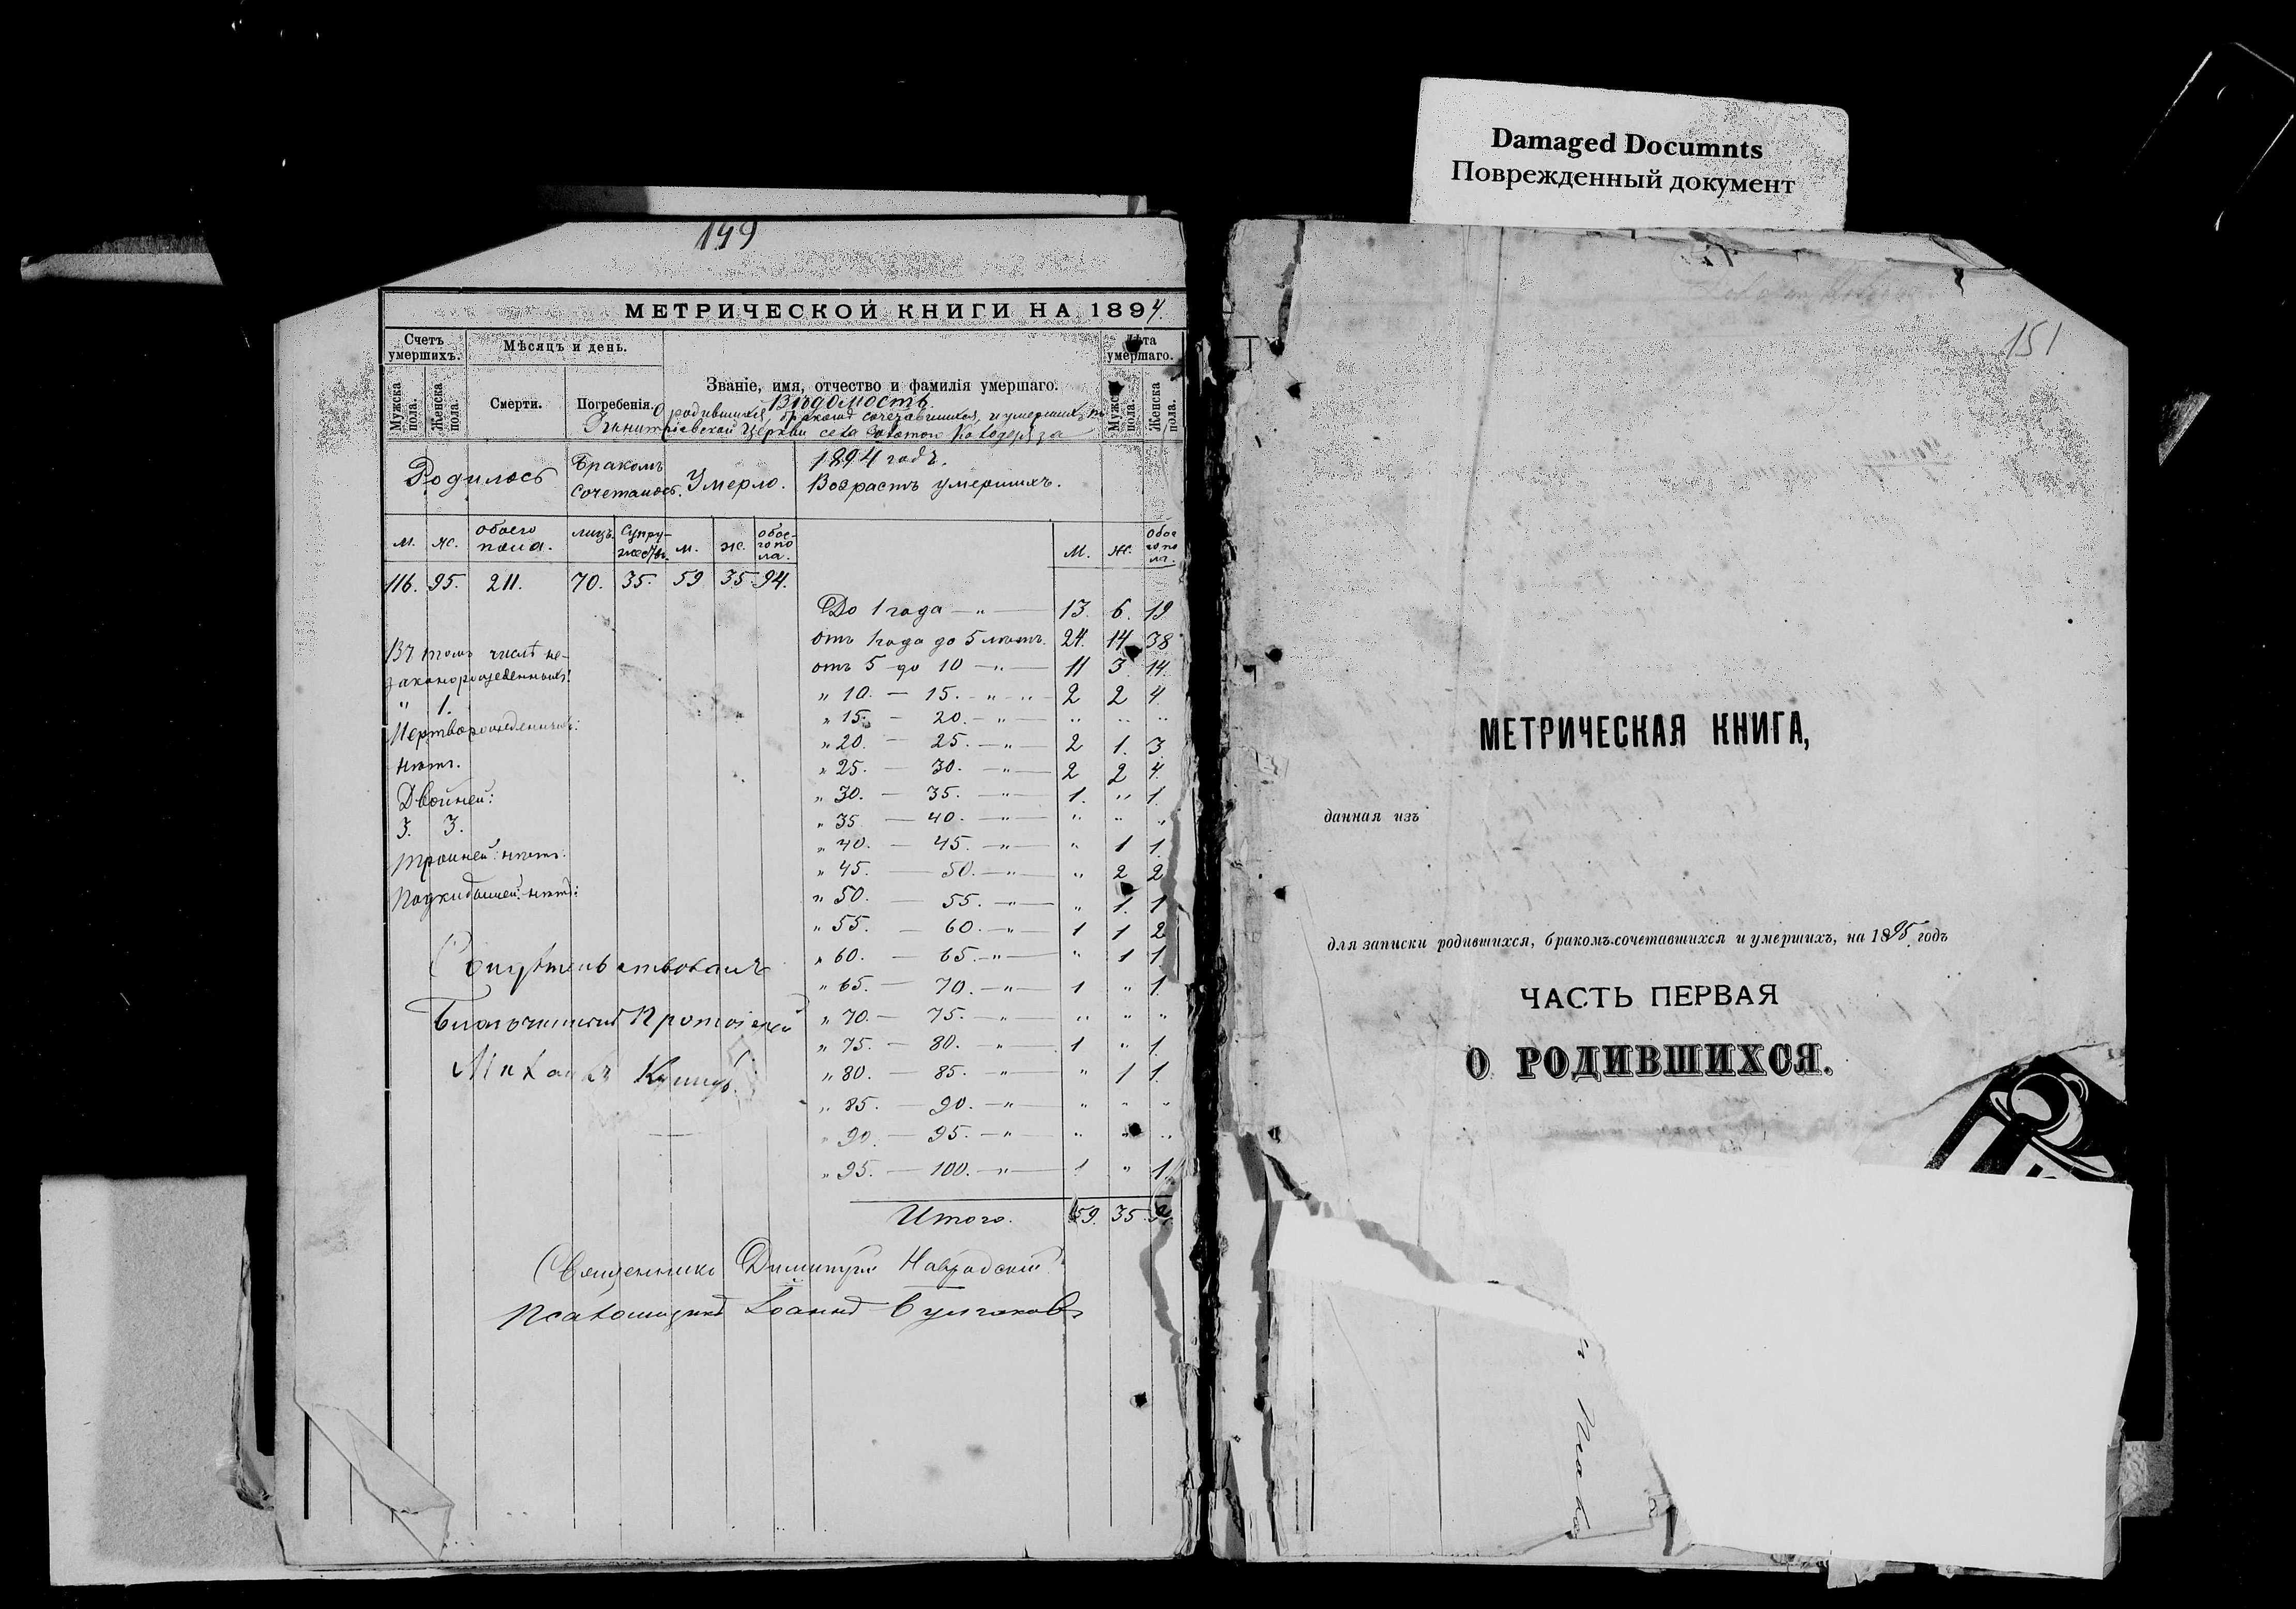 Damaged Documnts
Поврежденный документ
149
МЕТРИЧЕСКОЙ КНИГИ НА 1894
Счетъ умершихъ.
Мѣсяцъ и день.
Званіе, имя, отчество и фамилія умершаго.
Лѣта умершаго.
Мужска пола.
Женска пола.
Смерти.
Погребенія.
Мужска пола.
Женска пола.
Вѣдомость
о родившихся, бракомъ сочетавшихся, и умершихъ по
Димитріевской Церкви села Золотого Колодезя за
1894 годъ.
Родилось
Бракомъ сочеталось.
Умерло.
Возрастъ умершихъ.
м. ж. обоего пола. лицъ. Супружествъ. м. ж. обоего пола.
М. ж. обоего пола.
116. 95. 211. 70. 35. 59 35. 94.
До 1 года — „ — 13. 6. 19
отъ 1 года до 5 лѣтъ. 24. 14. 38
отъ 5 до 10 — „ — 11 3. 14.
„ 10. — 15. — „ — 2 2 4
„ 15. — 20. — „ — „ „ „
„ 20. — 25. — „ — 2 1. 3
„ 25. — 30. — „ — 2 2 4.
„ 30. — 35. — „ — 1. „ 1.
„ 35 — 40. — „ — „ „ „
„ 40. — 45. — „ — „ 1 1.
„ 45. — 50. — „ — „ 2 2
„ 50. — 55. — „ — „ 1. 1
„ 55. — 60. — „ — 1 1 2
„ 60. — 65. — „ — „ 1 1
„ 65. — 70. — „ — 1 „ 1.
„ 70. — 75. — „ — „ „ „
„ 75. — 80. — „ — 1 „ 1.
„ 80. — 85. — „ — „ 1 1.
„ 85. — 90. — „ — „ „ „
„ 90. — 95. — „ — „ „ „
„ 95. — 100. — „ — 1 „ 1.
Итого. 59. 35.
Въ томъ числѣ не-
законорожденныхъ:
„ 1.
Мертворожденныхъ:
нѣтъ.
Двойней:
3. 3.
тройней: нѣтъ.
Подкидышей: нѣтъ:
Свидѣтельствовалъ
Благочинный Протоіерей
Михаилъ
Священникъ Димитрій Навродскій
Псаломщикъ Іоаннъ
151
МЕТРИЧЕСКАЯ КНИГА,
данная изъ
для записки родившихся, бракомъ сочетавшихся и умершихъ, на 1895 годъ
ЧАСТЬ ПЕРВАЯ
О РОДИВШИХСЯ.